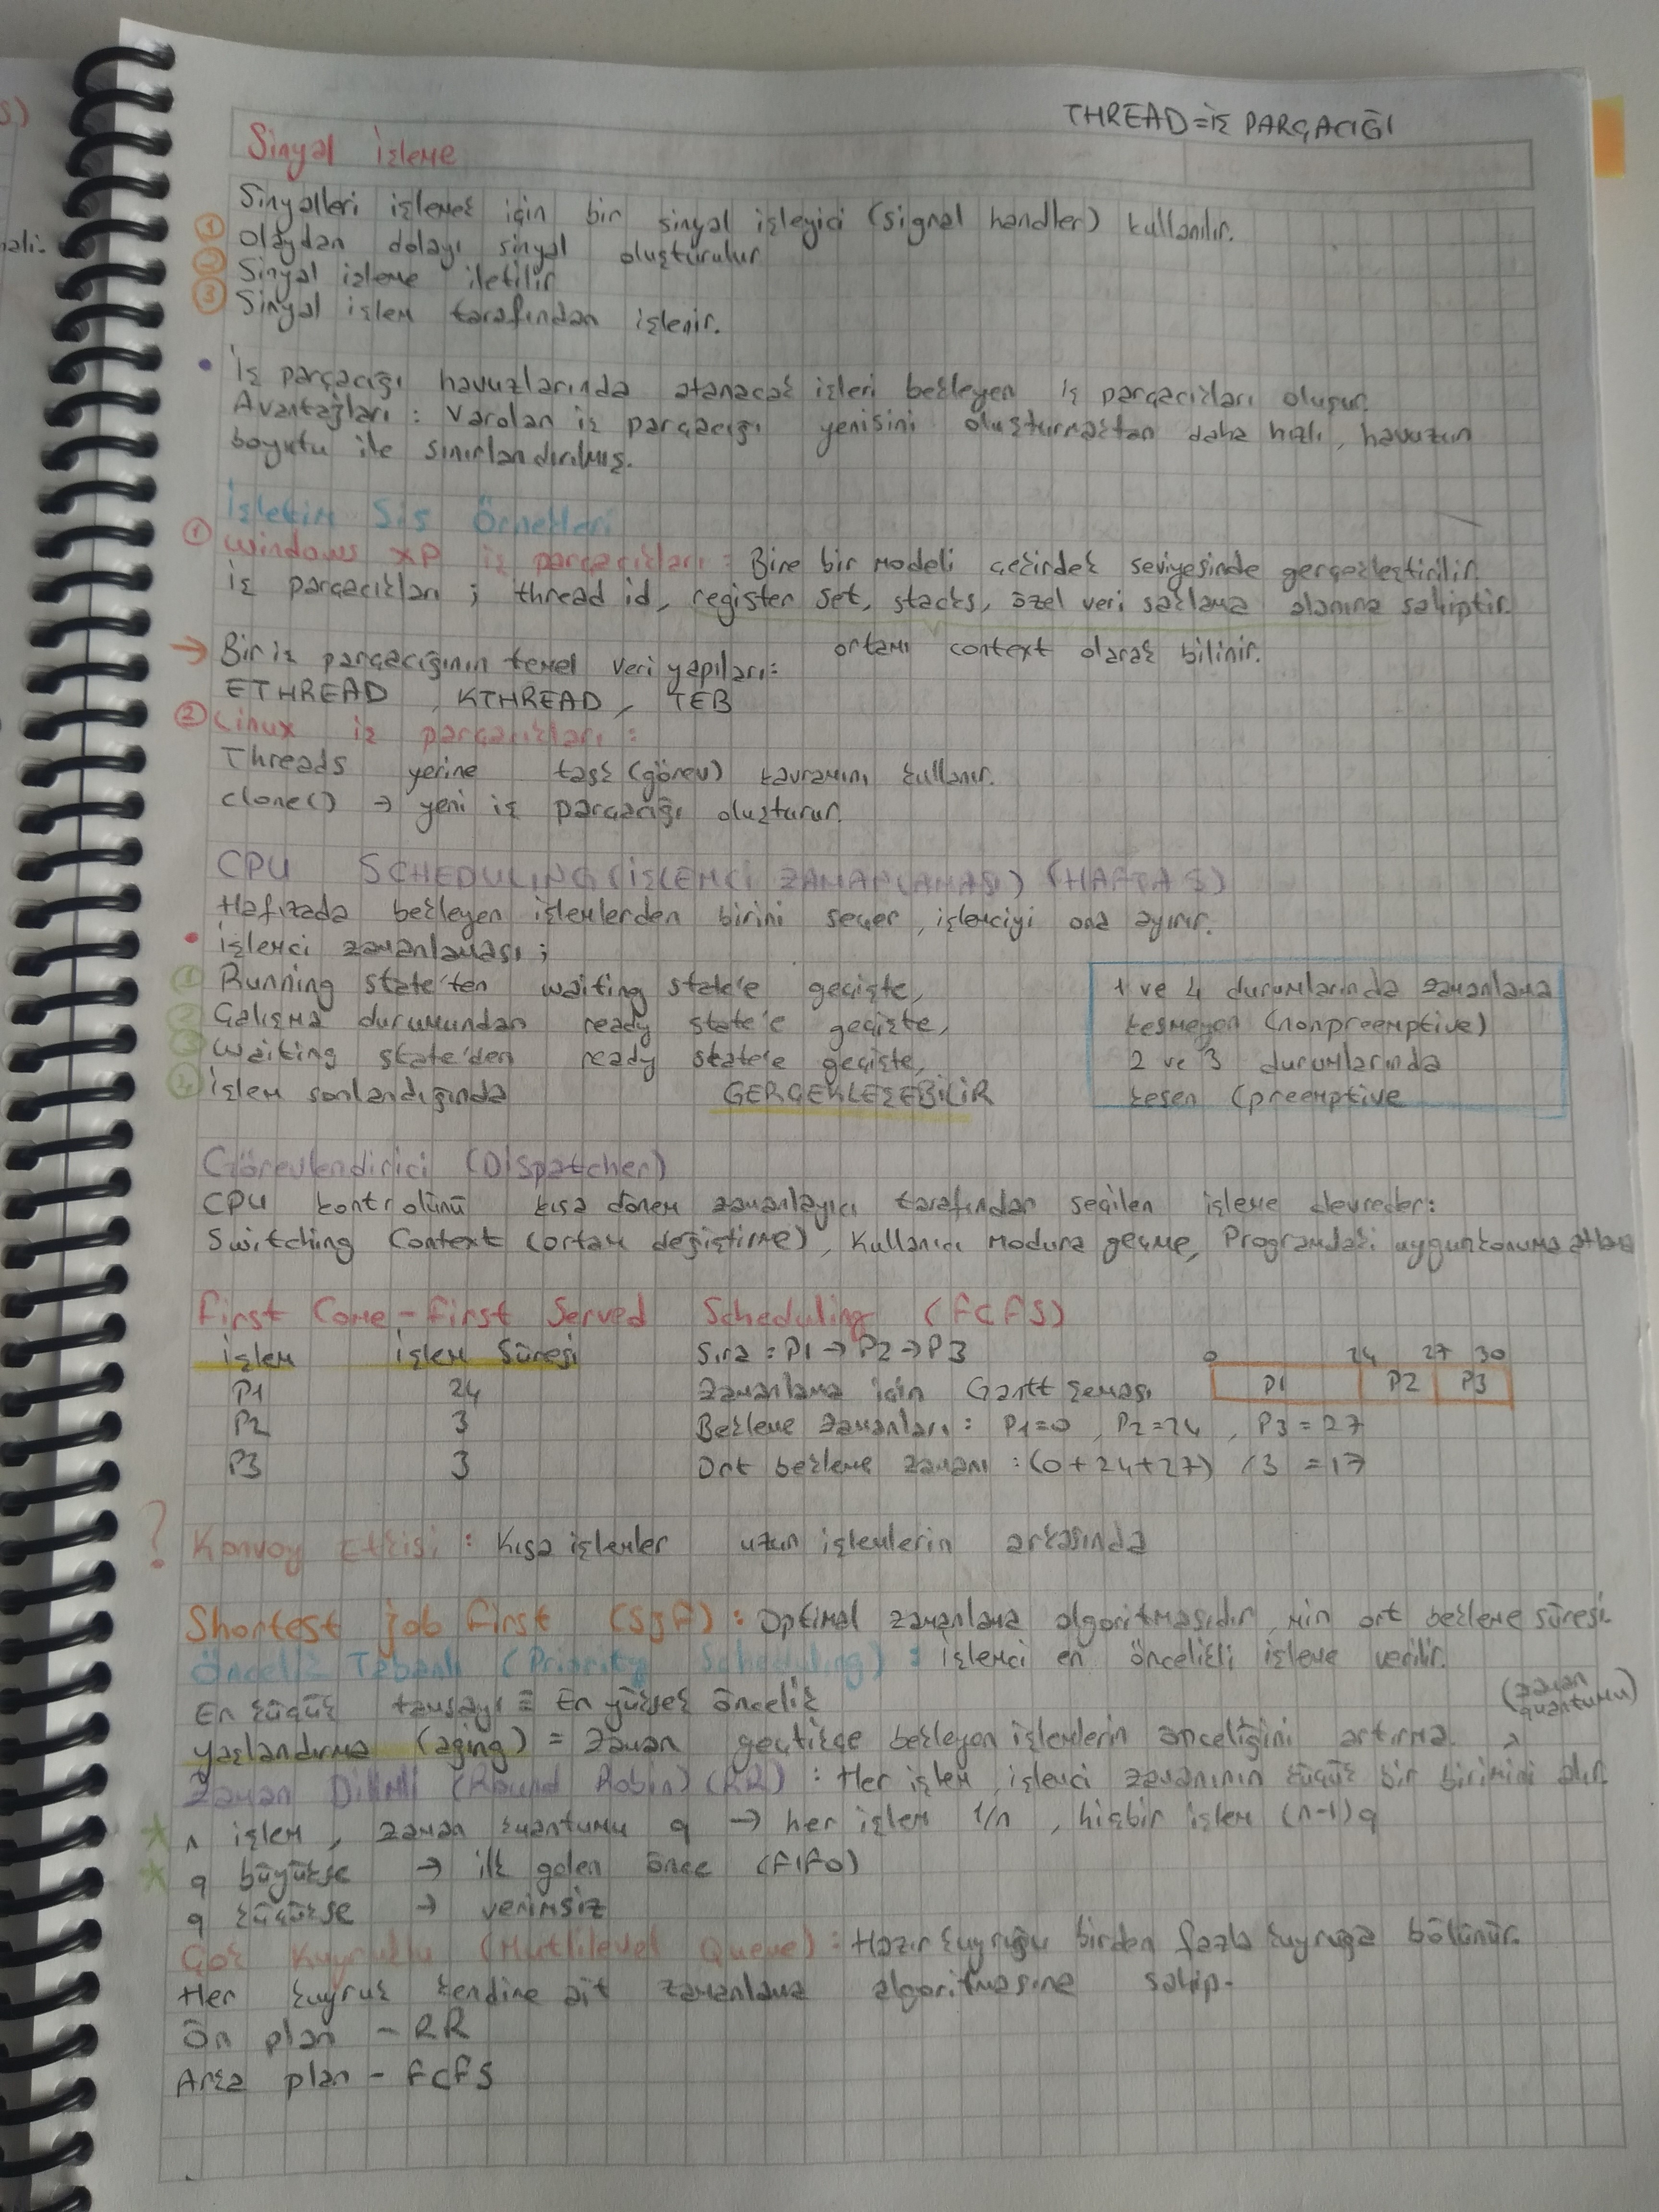 THREAD=İŞ PARÇACIĞI
Sinyal işleme
Sinyalleri işlemek için bir sinyal işleyici (signal handler) kullanılır.
① Olaydan dolayı sinyal oluşturulur
② Sinyal işleme iletilir
③ Sinyal işlem tarafından işlenir.
• İş parçacığı havuzlarında atanacak işleri bekleyen iş parçacıkları oluşur.
Avantajları : Varolan iş parçacığı yenisini oluşturmaktan daha hızlı, havuzun
boyutu ile sınırlandırılmış.
İşletim Sis Örnekleri
① Windows XP iş parçacıkları : Bire bir modeli çekirdek seviyesinde gerçekleştirilir.
İş parçacıkları ; thread id, register set, stacks, özel veri saklama alanına sahiptir.
ortamı context olarak bilinir.
→ Bir iş parçacığının temel veri yapıları:
ETHREAD , KTHREAD, TEB
② Linux iş parçacıkları :
Threads yerine task (görev) kavramını kullanır.
clone() → yeni iş parçacığı oluşturur.
CPU SCHEDULING (İŞLEMCİ ZAMANLAMASI) (HAFTA 5)
Hafızada bekleyen işlemlerden birini seçer, işlemciyi ona ayırır.
• İşlemci zamanlaması ;
① Running state'ten waiting state'e geçişte,
② Çalışma durumundan ready state'e geçişte,
③ Waiting state'den ready state'e geçişte,
④ İşlem sonlandığında GERÇEKLEŞEBİLİR
1 ve 4 durumlarında zamanlama
kesmeyen (nonpreemptive)
2 ve 3 durumlarında
kesen (preemptive
Görevlendirici (Dispatcher)
CPU kontrolünü kısa dönem zamanlayıcı tarafından seçilen işleme devreder:
Switching Context (ortam değiştirme), Kullanıcı moduna geçme, Programdaki uygun konuma atlama
First Come-First Served Scheduling (FCFS)
İşlem İşlem Süresi Sıra : P1 → P2 → P3
0 24 27 30
P1 24 Zamanlama için Gantt şeması P1 P2 P3
P2 3 Bekleme zamanları : P1=0 , P2=24 , P3=27
P3 3 Ort bekleme zamanı : (0+24+27) /3 =17
? Konvoy Etkisi : Kısa işlemler uzun işlemlerin arkasında
Shortest Job First (SJF) : Optimal zamanlama algoritmasıdır, min ort bekleme süresi.
Öncelik Tabanlı (Priority Scheduling) : İşlemci en öncelikli işleme verilir.
En küçük tamsayı ≡ En yüksek öncelik
Yaşlandırma (aging) = Zaman geçtikçe bekleyen işlemlerin önceliğini artırma.
(zaman quantumu)
Zaman Dilimli (Round Robin) (RR) : Her işlem, işlemci zamanının küçük bir birimini alır.
* n işlem , zaman kuantumu q → her işlem 1/n , hiçbir işlem (n-1)q
* q büyükse → ilk gelen önce (FIFO)
q küçükse → verimsiz
Çok Kuyruklu (Mutlilevel Queue) : Hazır kuyruğu birden fazla kuyruğa bölünür.
Her kuyruk kendine ait zamanlama algoritmasına sahip.
Ön plan - RR
Arka plan - FCFS